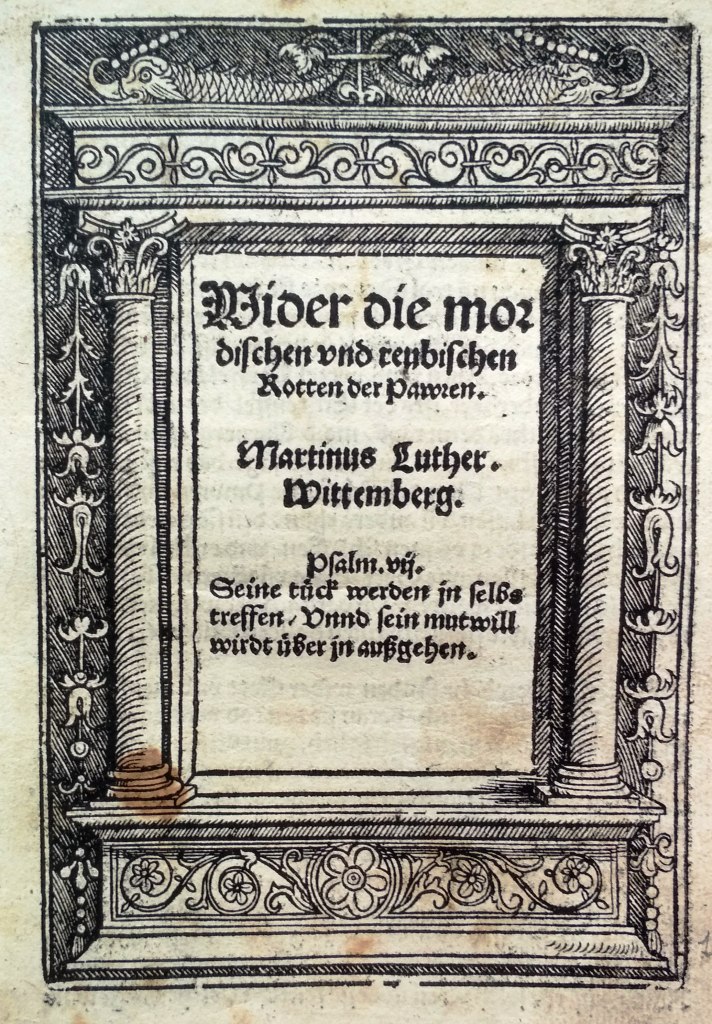 Wider die mor
dischen vnd reubischen
Rotten der Pawren.
Martinus Luther.
Wittemberg.
Psalm. vij.
Seine tück werden jn selbs
treffen/ Vnnd sein mutwill
wirdt über jn außgehen.